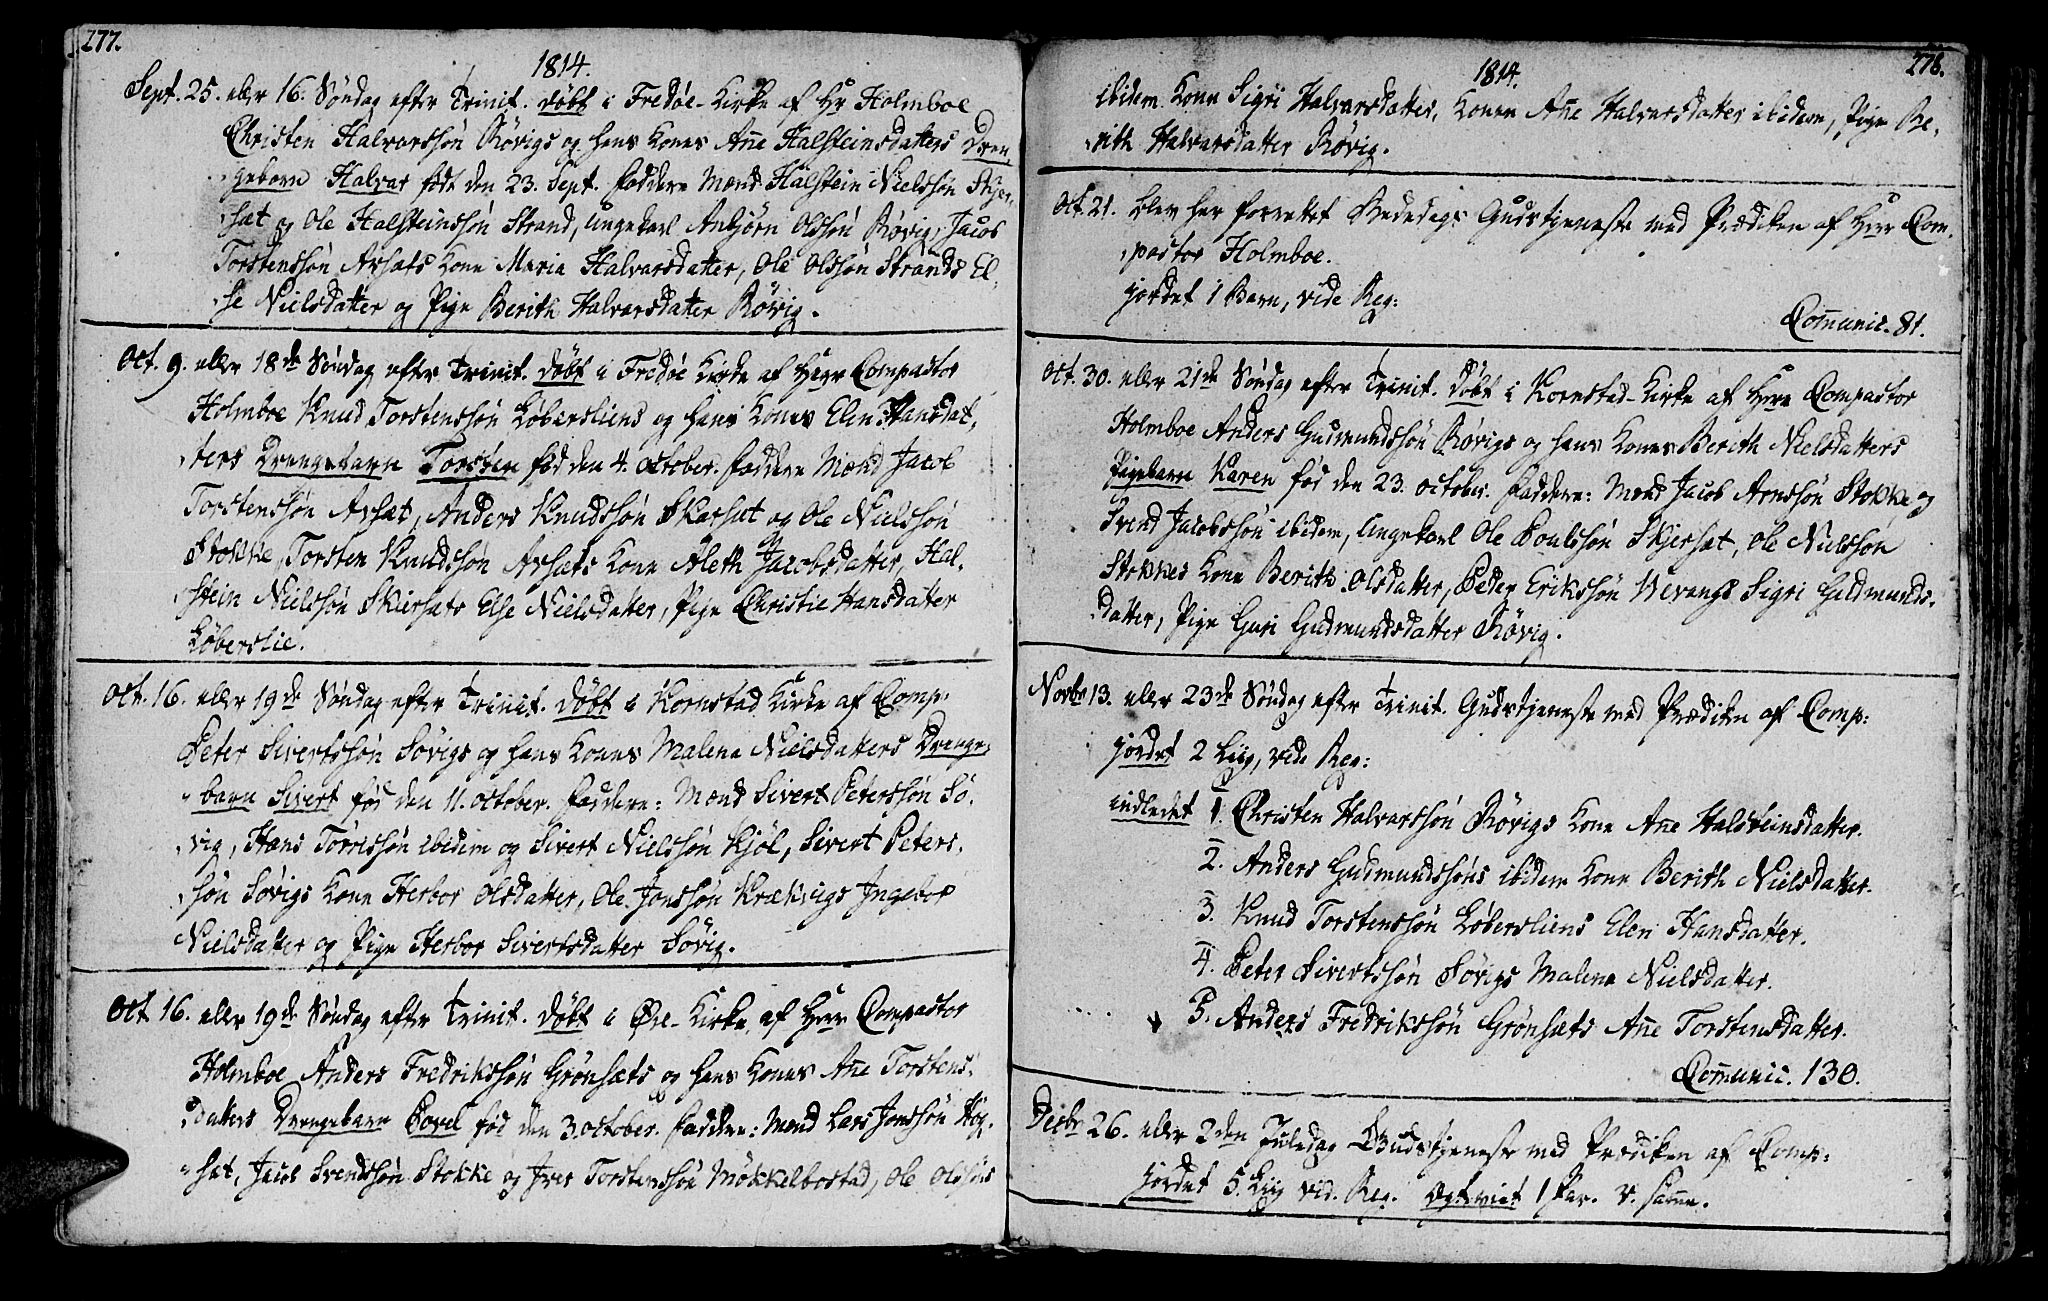 277.
1814.
Sept. 25. eller 16. Søndag efter Trinit. døbt i Fredøe-Kirke af Hr Holmboe
Christen Halvarssøn Røvigs og hans Kones Añe Halsteinsdatters Dren,
gebarn Halvar født den 23. Sept. Faddere Mænd Halstein Nielssøn Skjer,
sæt og Ole Halsteinssøn Strand, Ungekarl Anbjörn Olssøn Røvig, Jacob
Torstenssøn Arsæts Kone Maria Halvarsdatter, Ole Olssøn Strands El,
se Nielsdatter og Pige Berith Halvarsdatter Røvig.
Oct. 9. eller 18de Søndag efter Trinit. døbt i Fredøe Kirke af Herr Compastor
Holmboe Knud Torstenssøn Løbersliens og hans Kones Elen Hansdat,
ters Drengebarn Torsten fød den 4. October. Faddere Mænd Jacob
Torstenssøn Arsæt, Anders Knudssøn Skarsæt og Ole Nielssøn
Stokke, Torsten Knudssøn Arsæts Kone Aleth Jacobsdatter, Hal,
stein Nielssøn Skiersæts Else Nielsdatter, Pige Christie Hansdatter
Løberslie.
Oct. 16. eller 19de Søndag efter Trinit. døbt i Kornstad Kirke af Comp:
Peter Sivertssøn Søvigs og hans Kones Malena Nielsdatters Drenge,
barn Sivert fød den 11. October. Faddere: Mænd Sivert Peterssøn Sø,
vig, Hans Tørrissøn ibidem og Sivert Nielssøn Kjöl, Sivert Peters,
søn Søvigs Kone Herbor Olsdatter, Ole Jonssøn Krækvigs Ingebor
Nielsdatter og Pige Herbor Sivertsdatter Søvig.
Oct 16. eller 19de Søndag efter Trinit. døbt i Øre-Kirke af Herr Compastor
Holmboe Anders Fredrikssøn Grønsæts og hans Kones Añe Torstens,
datters Drengebarn Povel fød den 3. October. Faddere: Mænd Lars Jonssøn Høg,
sæt, Jacob Svendssøn Stokke og Iver Torstenssøn Møkkelbostad, Ole Olssøns
278.
1814.
ibidem Kone Sigri Halvarsdatter, Konen Añe Halvarsdatter ibidem, Pige Be,
rith Halvarsdatter Røvig.
Oct. 21. blev her forrettet Bededags Gudstjeneste med Prædiken af Herr Com,
pastor Holmboe.
jordet 1 Barn, vide Reg:
Com̄unic. 81.
Oct. 30. eller 21de Søndag efter Trinit. døbt i Kornstad-Kirke af Herre Compastor
Holmboe Anders Gudmundssøn Røvigs og hans Kones Berith Nielsdatters
Pigebarn Karen fød den 23. October. Faddere: Mænd Jacob Arnssøn Stokke og
Svend Jacobssøn ibidem, Ungekarl Ole Poulssøn Skjersæt, Ole Nielssøn
Stokkes Kone Berith Olsdatter, Peder Erikssøn Nevangs Sigri Guldmunds,
datter, Pige Guri Gudmundsdatter Røvig.
Novbr 13. eller 23de Søndag efter Trinit. Gudstjeneste med Prædiken af Comp:
jordet 2 Liig, vide Reg:
indledet 1. Christen Halvarssøn Røvigs Kone Añe Halsteinsdatter.
2. Anders Gudmundssøns ibidem Kone Berith Nielsdatter.
3. Knud Torstenssøn Løbersliens Elen Hansdatter.
4. Peter Sivertssøn Søvigs Malena Nielsdatter.
5. Anders Fredrikssøn Grønsæts Añe Torstensdatter.
Com̄unic. 130.
Decbr 26. eller 2den Juledag Gudstjeneste med Prædiken af Comp:
jordet 5. Liig vid. Reg. Ægteviet 1 Par. v. Sam̄e.